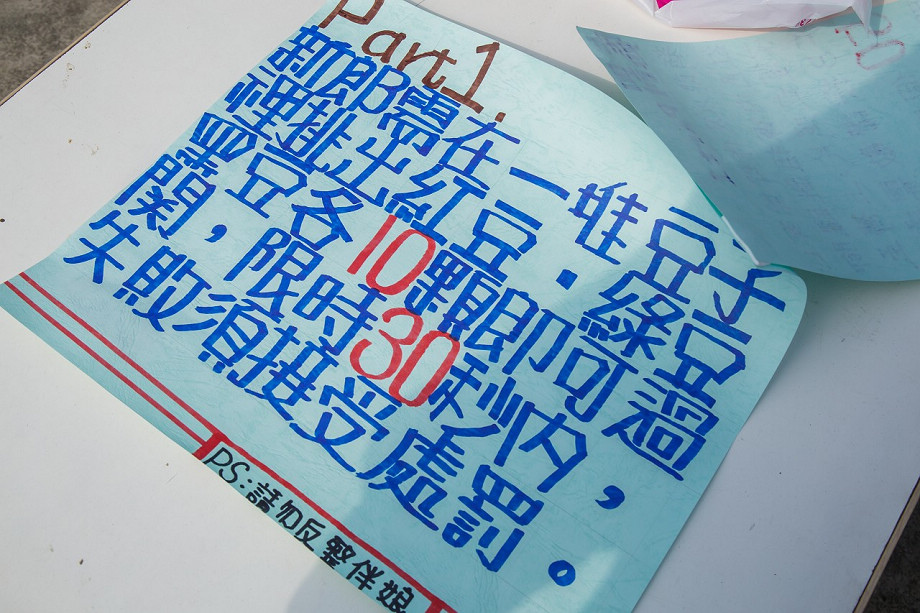 Part1.
新郎需在一堆豆子
裡挑出紅豆.綠豆
黑豆各10顆即可過
關,限時30秒內,
失敗須接受處罰。
PS:請勿反整伴娘